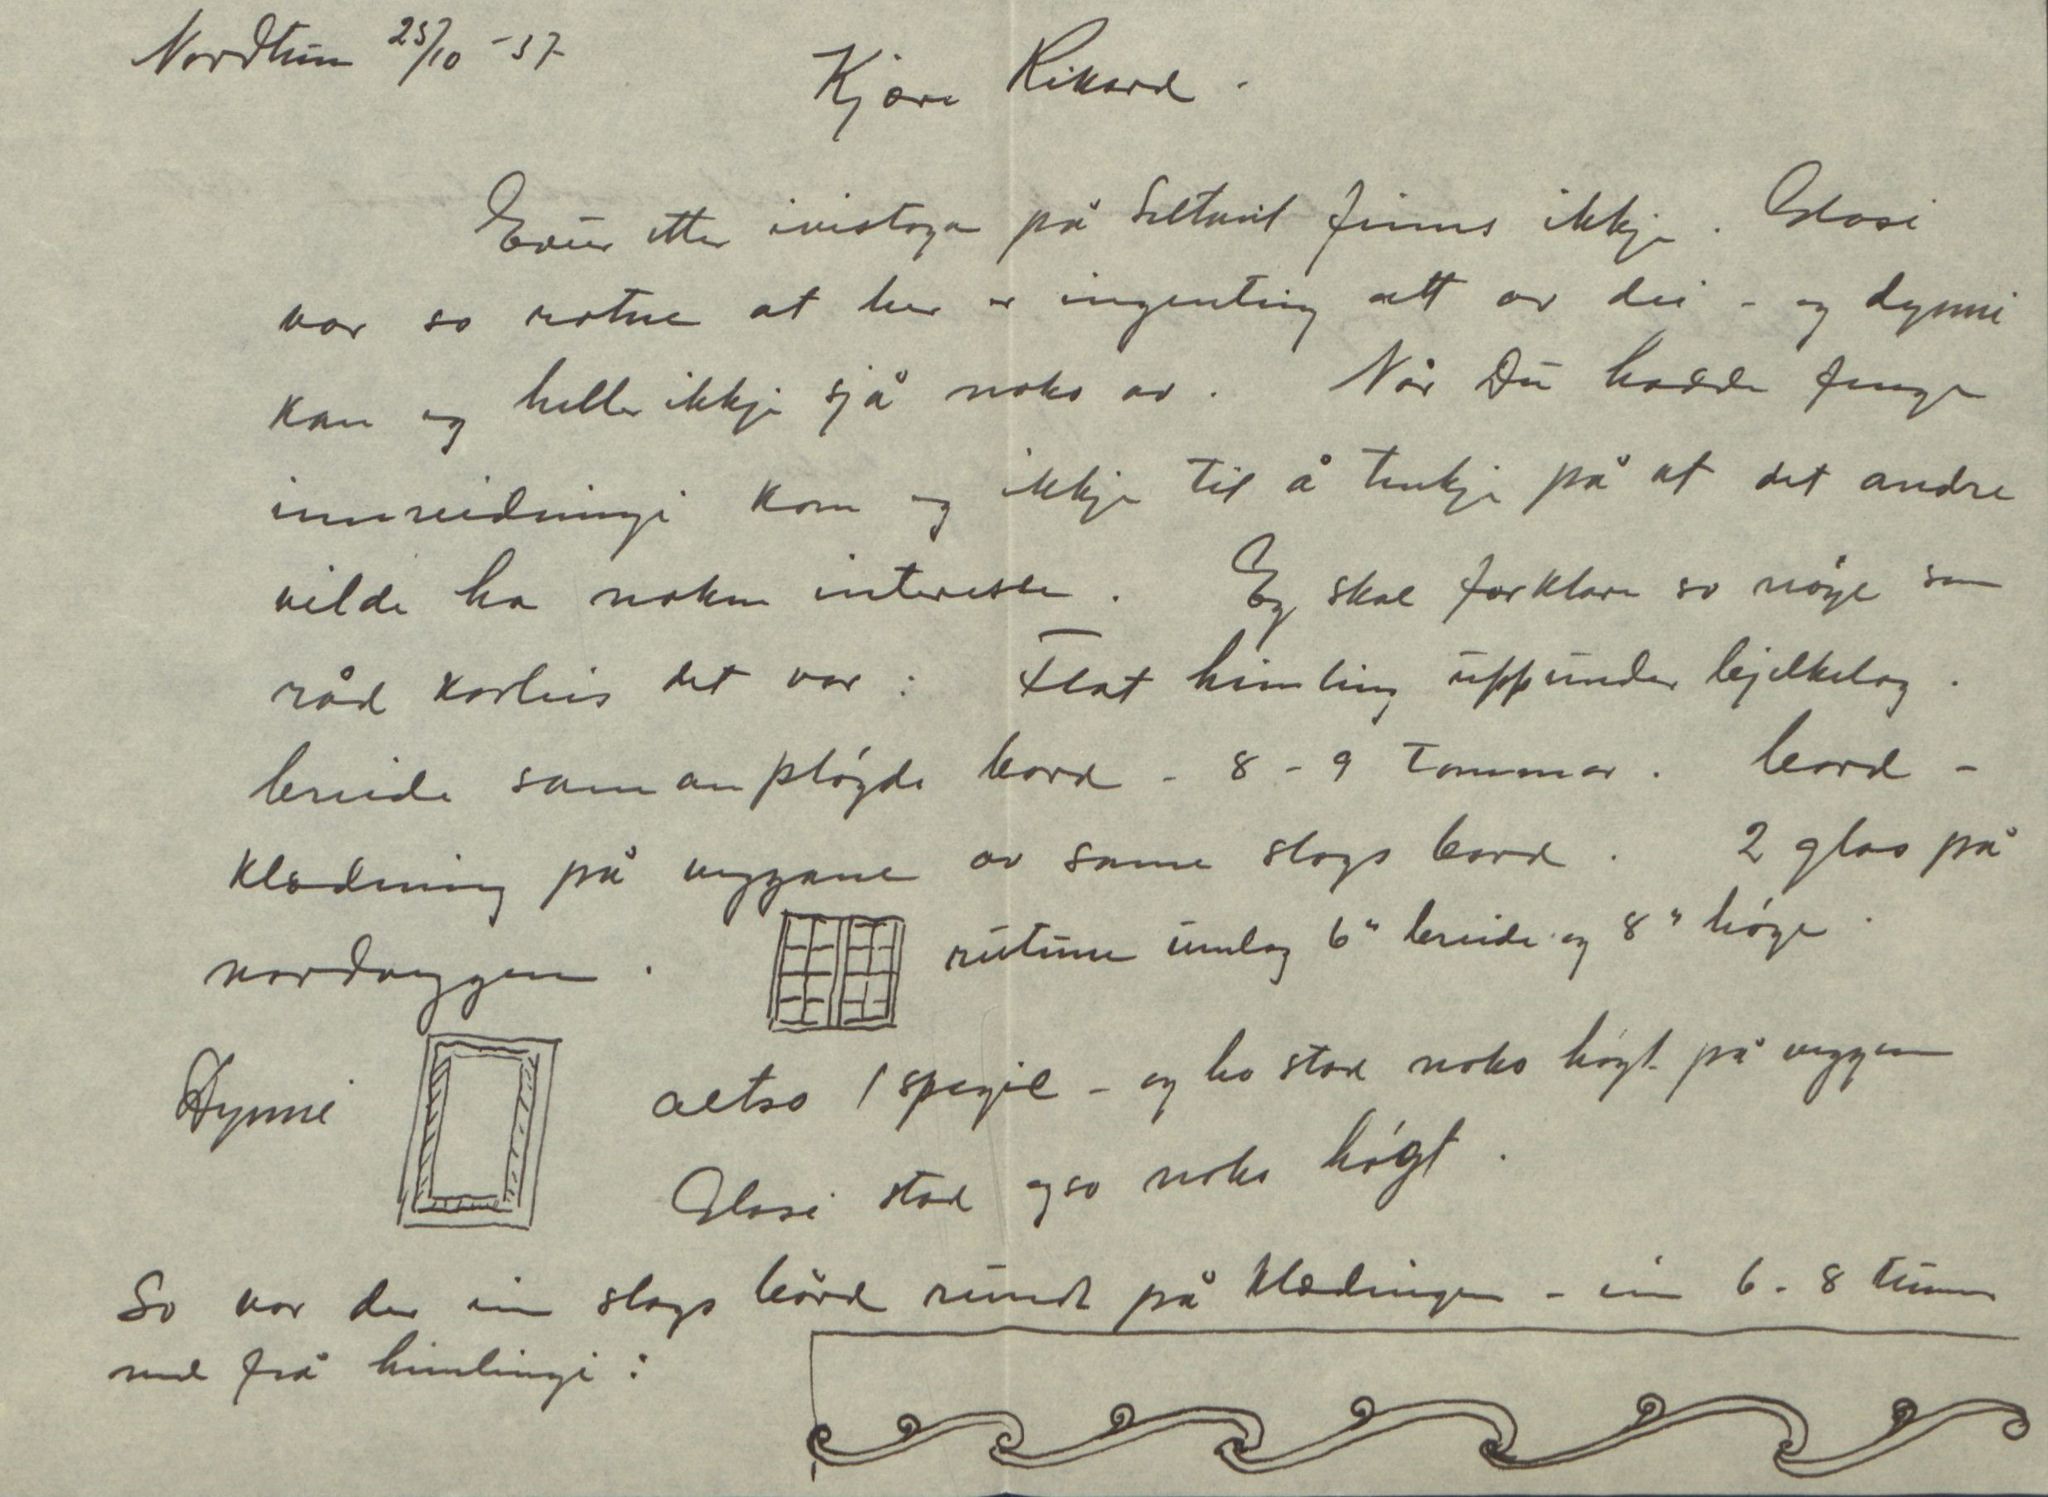 Nordtun 25/10 -37
Kjære Rikard.
etter ivistoga på Seltveit finns ikkje. Glasi
var so rotne at her er ingenting att av dei - og dynni
kan eg heller ikkje sjå noko av. Når Du hadde fenge
innreidningi kom eg ikkje til å tenkje på at det andre
vilde ha nokon interesse. Eg skal forklare so nøye som
råd korleis det var: Flat himling uppunder bjelkelag.
breide samanpløgde bord - 8 - 9 tommar. bord -
klædning på veggane av same slags bord. 2 glas på
nordveggen. rutune umlag 6" breide og 8" høge.
Dynni altso 1 spegil - og ho stod noko høgt på veggen
Glasi stod ogso noko høgt.
So var der ein slags bord rundt på klædingen - ein 6 - 8 tumar
ned frå himlingi: